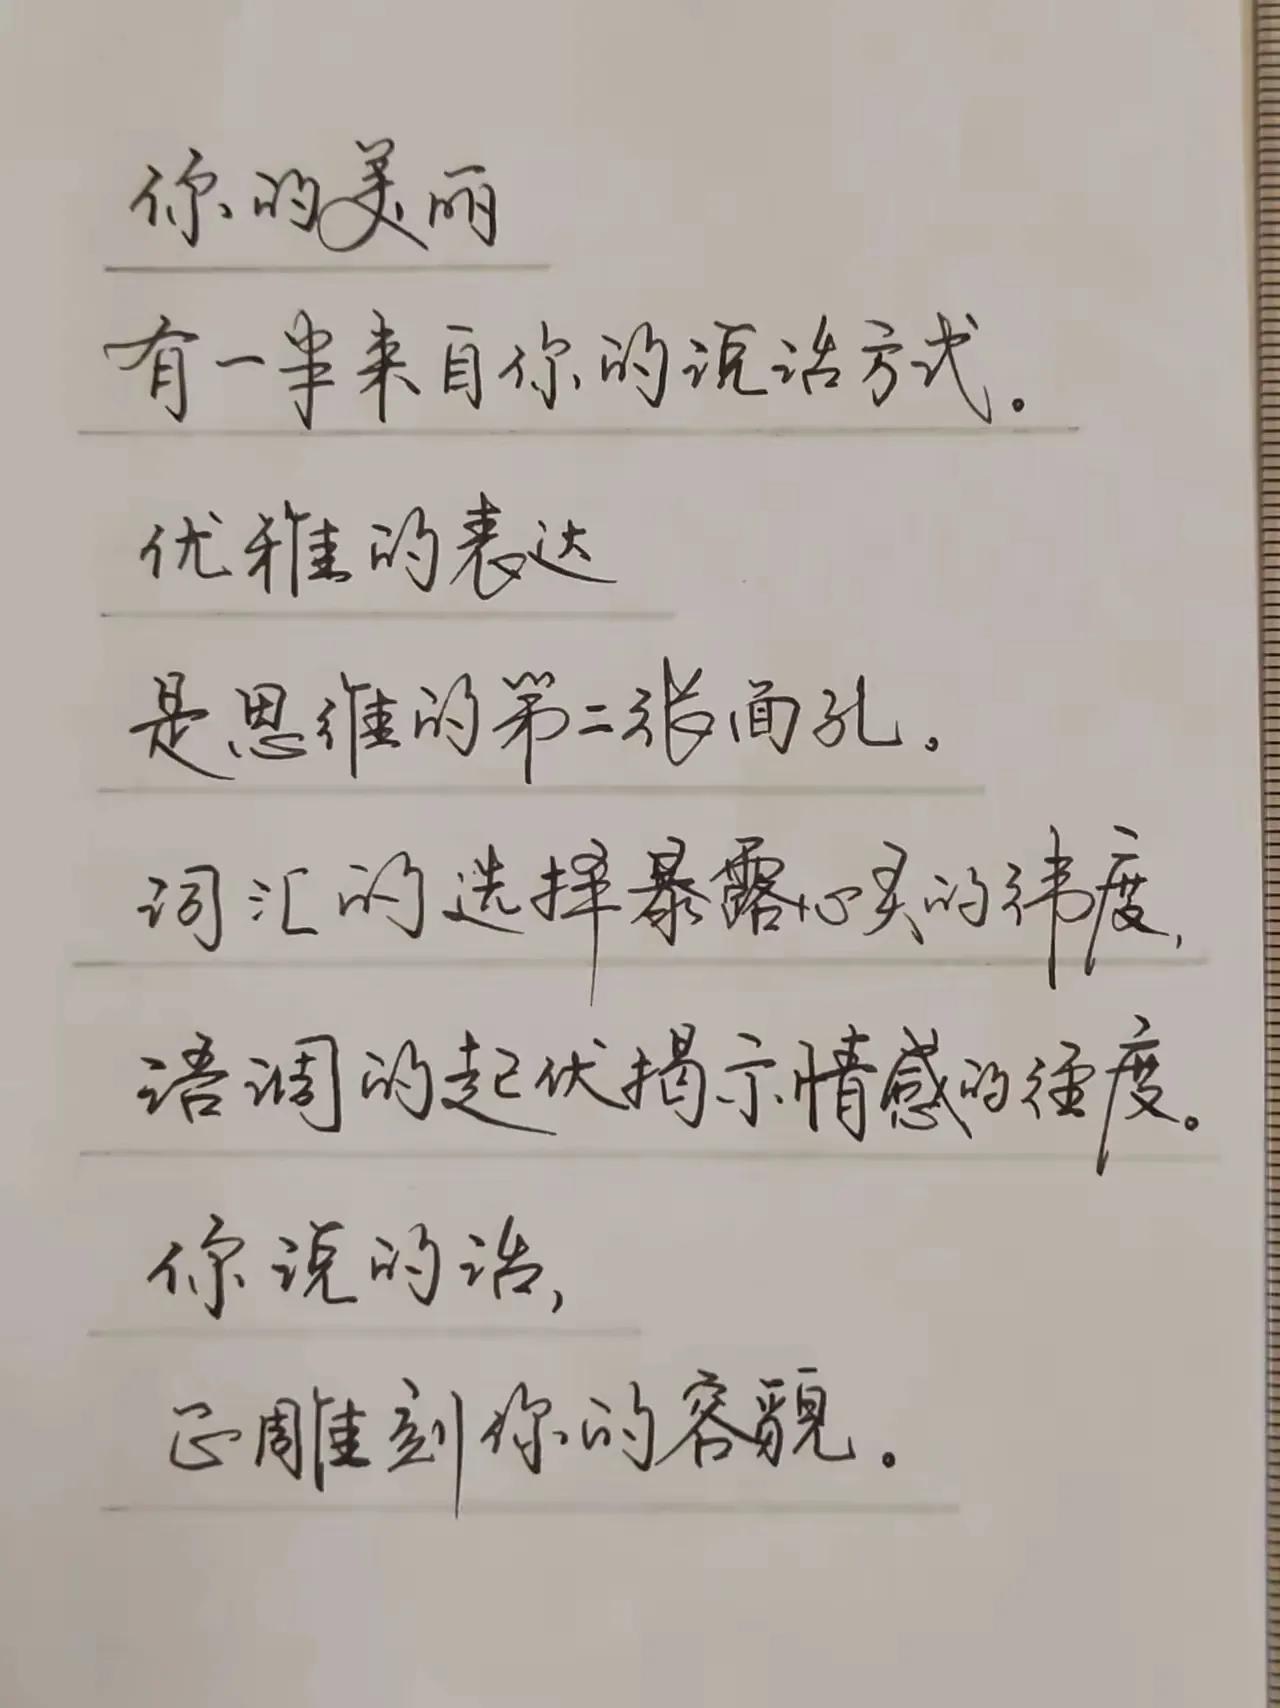 你的美丽
有一半来自你的说话方式。
优雅的表达
是思维的第二张面孔。
词汇的选择暴露心灵的纬度,
语调的起伏揭示情感的经度。
你说的话,
正雕刻你的容貌。